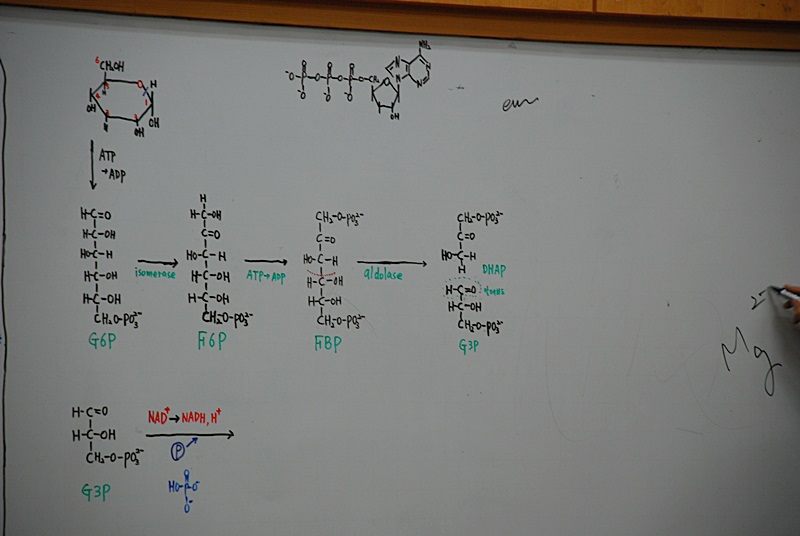 6
CH₂OH
H
OH
OH
OH
ATP
→ADP
NH₂
OH
H-C=O
H-C-OH
HO-C-H
H-C-OH
H-C-OH
CH₂-O-PO₃²⁻
G6P
isomerase
H
H-C-OH
C=O
HO-C-H
H-C-OH
H-C-OH
CH₂-O-PO₃²⁻
F6P
ATP→ADP
CH₂-O-PO₃²⁻
C=O
HO-C-H
H-C-OH
H-C-OH
CH₂-O-PO₃²⁻
FBP
aldolase
CH₂-O-PO₃²⁻
C=O
HO-C-H
H
DHAP
H-C=O
H-C-OH
CH₂-O-PO₃²⁻
G3P
Mg 2
H-C=O
H-C-OH
CH₂-O-PO₃²⁻
G3P
NAD⁺→NADH, H⁺
P
HO-P-O⁻
O⁻